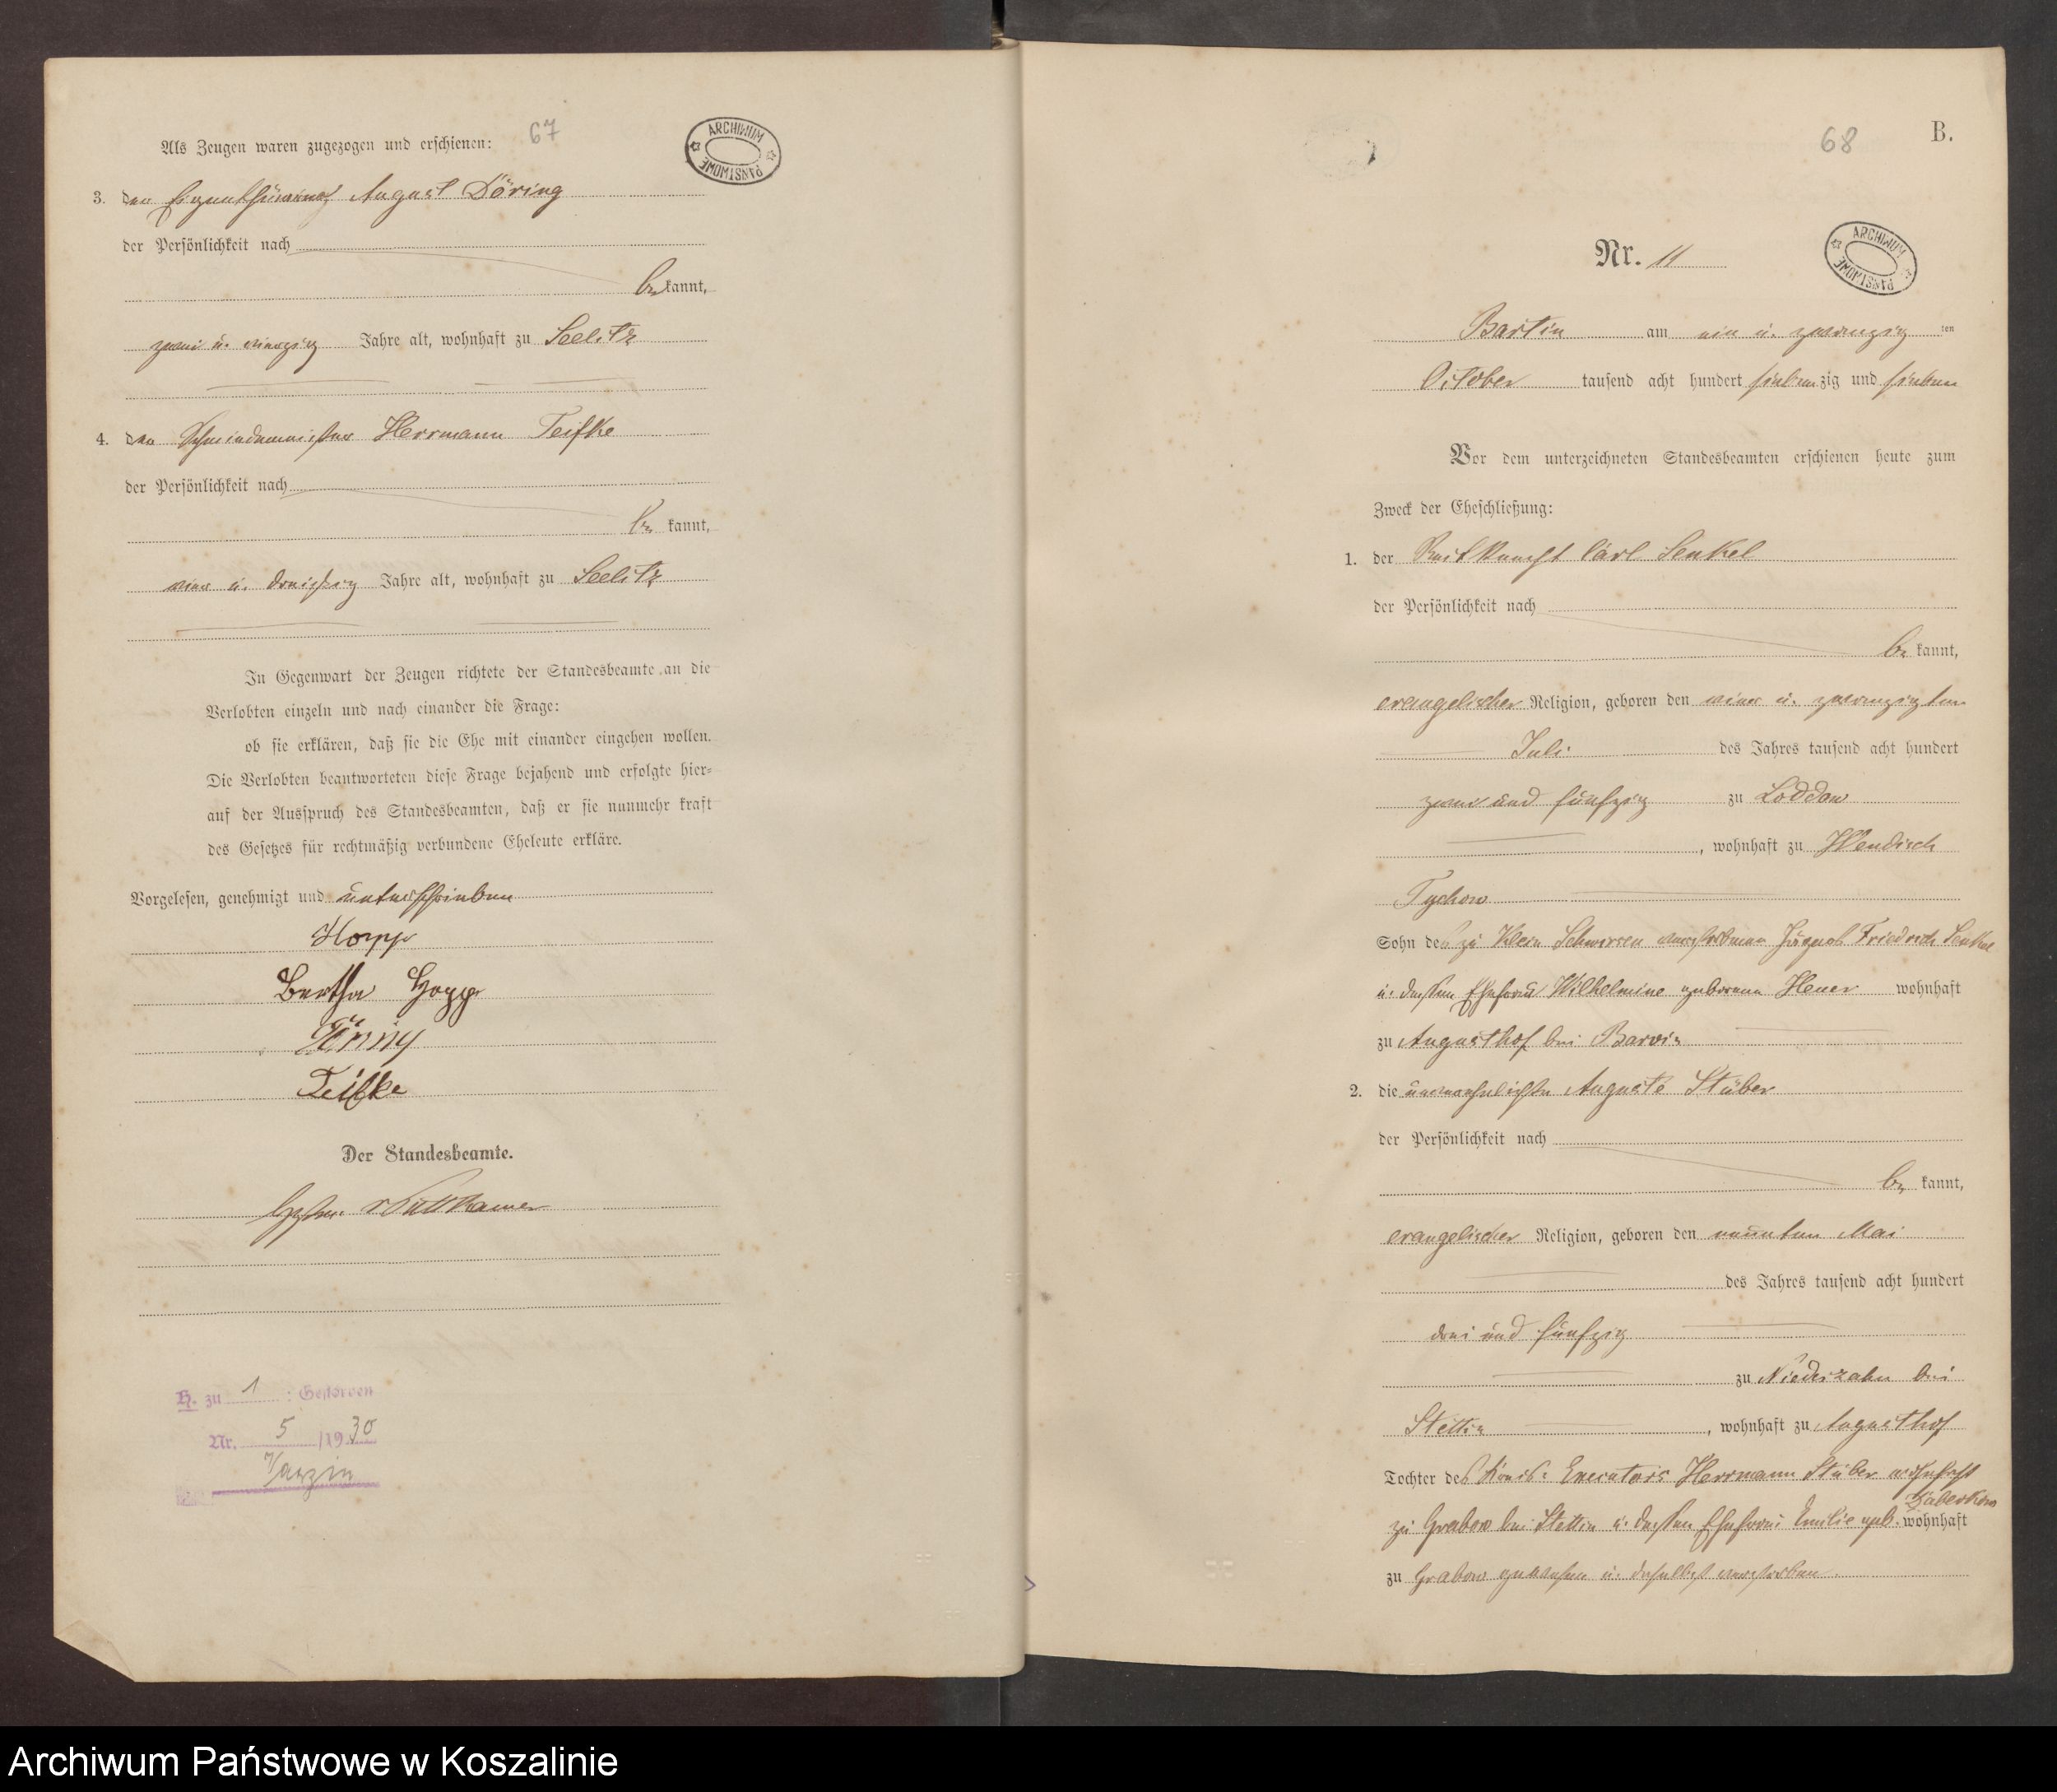 67
ARCHIWUM PAŃSTWOWE
Als Zeugen waren zugezogen und erschienen:
3. den Eigenthümer August Döring
der Persönlichkeit nach
bekannt,
zwei u. vierzig Jahre alt, wohnhaft zu Seelitz
4. den Schmiedemeister Herrmann Teifke
der Persönlichkeit nach
be kannt,
vier u. dreißig Jahre alt, wohnhaft zu Seelitz
In Gegenwart der Zeugen richtete der Standesbeamte an die
Verlobten einzeln und nach einander die Frage:
ob sie erklären, daß sie die Ehe mit einander eingehen wollen.
Die Verlobten beantworteten diese Frage bejahend und erfolgte hier-
auf der Ausspruch des Standesbeamten, daß er sie nunmehr kraft
des Gesetzes für rechtmäßig verbundene Eheleute erkläre.
Vorgelesen, genehmigt und unterschrieben
Hopp
Bertha Hopp
Döring
Teifke
Der Standesbeamte.
Puttkamer
H. zu 1 : Gestorben
Nr. 5 /1930
Varzin
68
B.
Nr. 11
ARCHIWUM PAŃSTWOWE
Bartin am ein u. zwanzig ten
October tausend acht hundert siebenzig und sieben
Vor dem unterzeichneten Standesbeamten erschienen heute zum
Zweck der Eheschließung:
1. der Reitknecht Carl Senkel
der Persönlichkeit nach
be kannt,
evangelischer Religion, geboren den vier u. zwanzigsten
Juli des Jahres tausend acht hundert
zwei und fünfzig zu Loddow
, wohnhaft zu Wendisch
Tychow
Sohn des zu Klein Schwirsen verstorbenen Jägers Friedrich Senkel
u. dessen Ehefrau Wilhelmine geborene Heuer wohnhaft
zu Augusthof bei Barvin
2. die unverehelichte Auguste Stüber
der Persönlichkeit nach
be kannt,
evangelischer Religion, geboren den neunten Mai
des Jahres tausend acht hundert
drei und fünfzig
zu Niederzahn bei
Stettin, wohnhaft zu Augusthof
Tochter des Kreis- Executors Herrmann Stüber wohnhaft
zu Grabow bei Stettin u. dessen Ehefrau Emilie geb. Züberkow wohnhaft
zu Grabow gewesen u. daselbst verstorben.
Archiwum Państwowe w Koszalinie